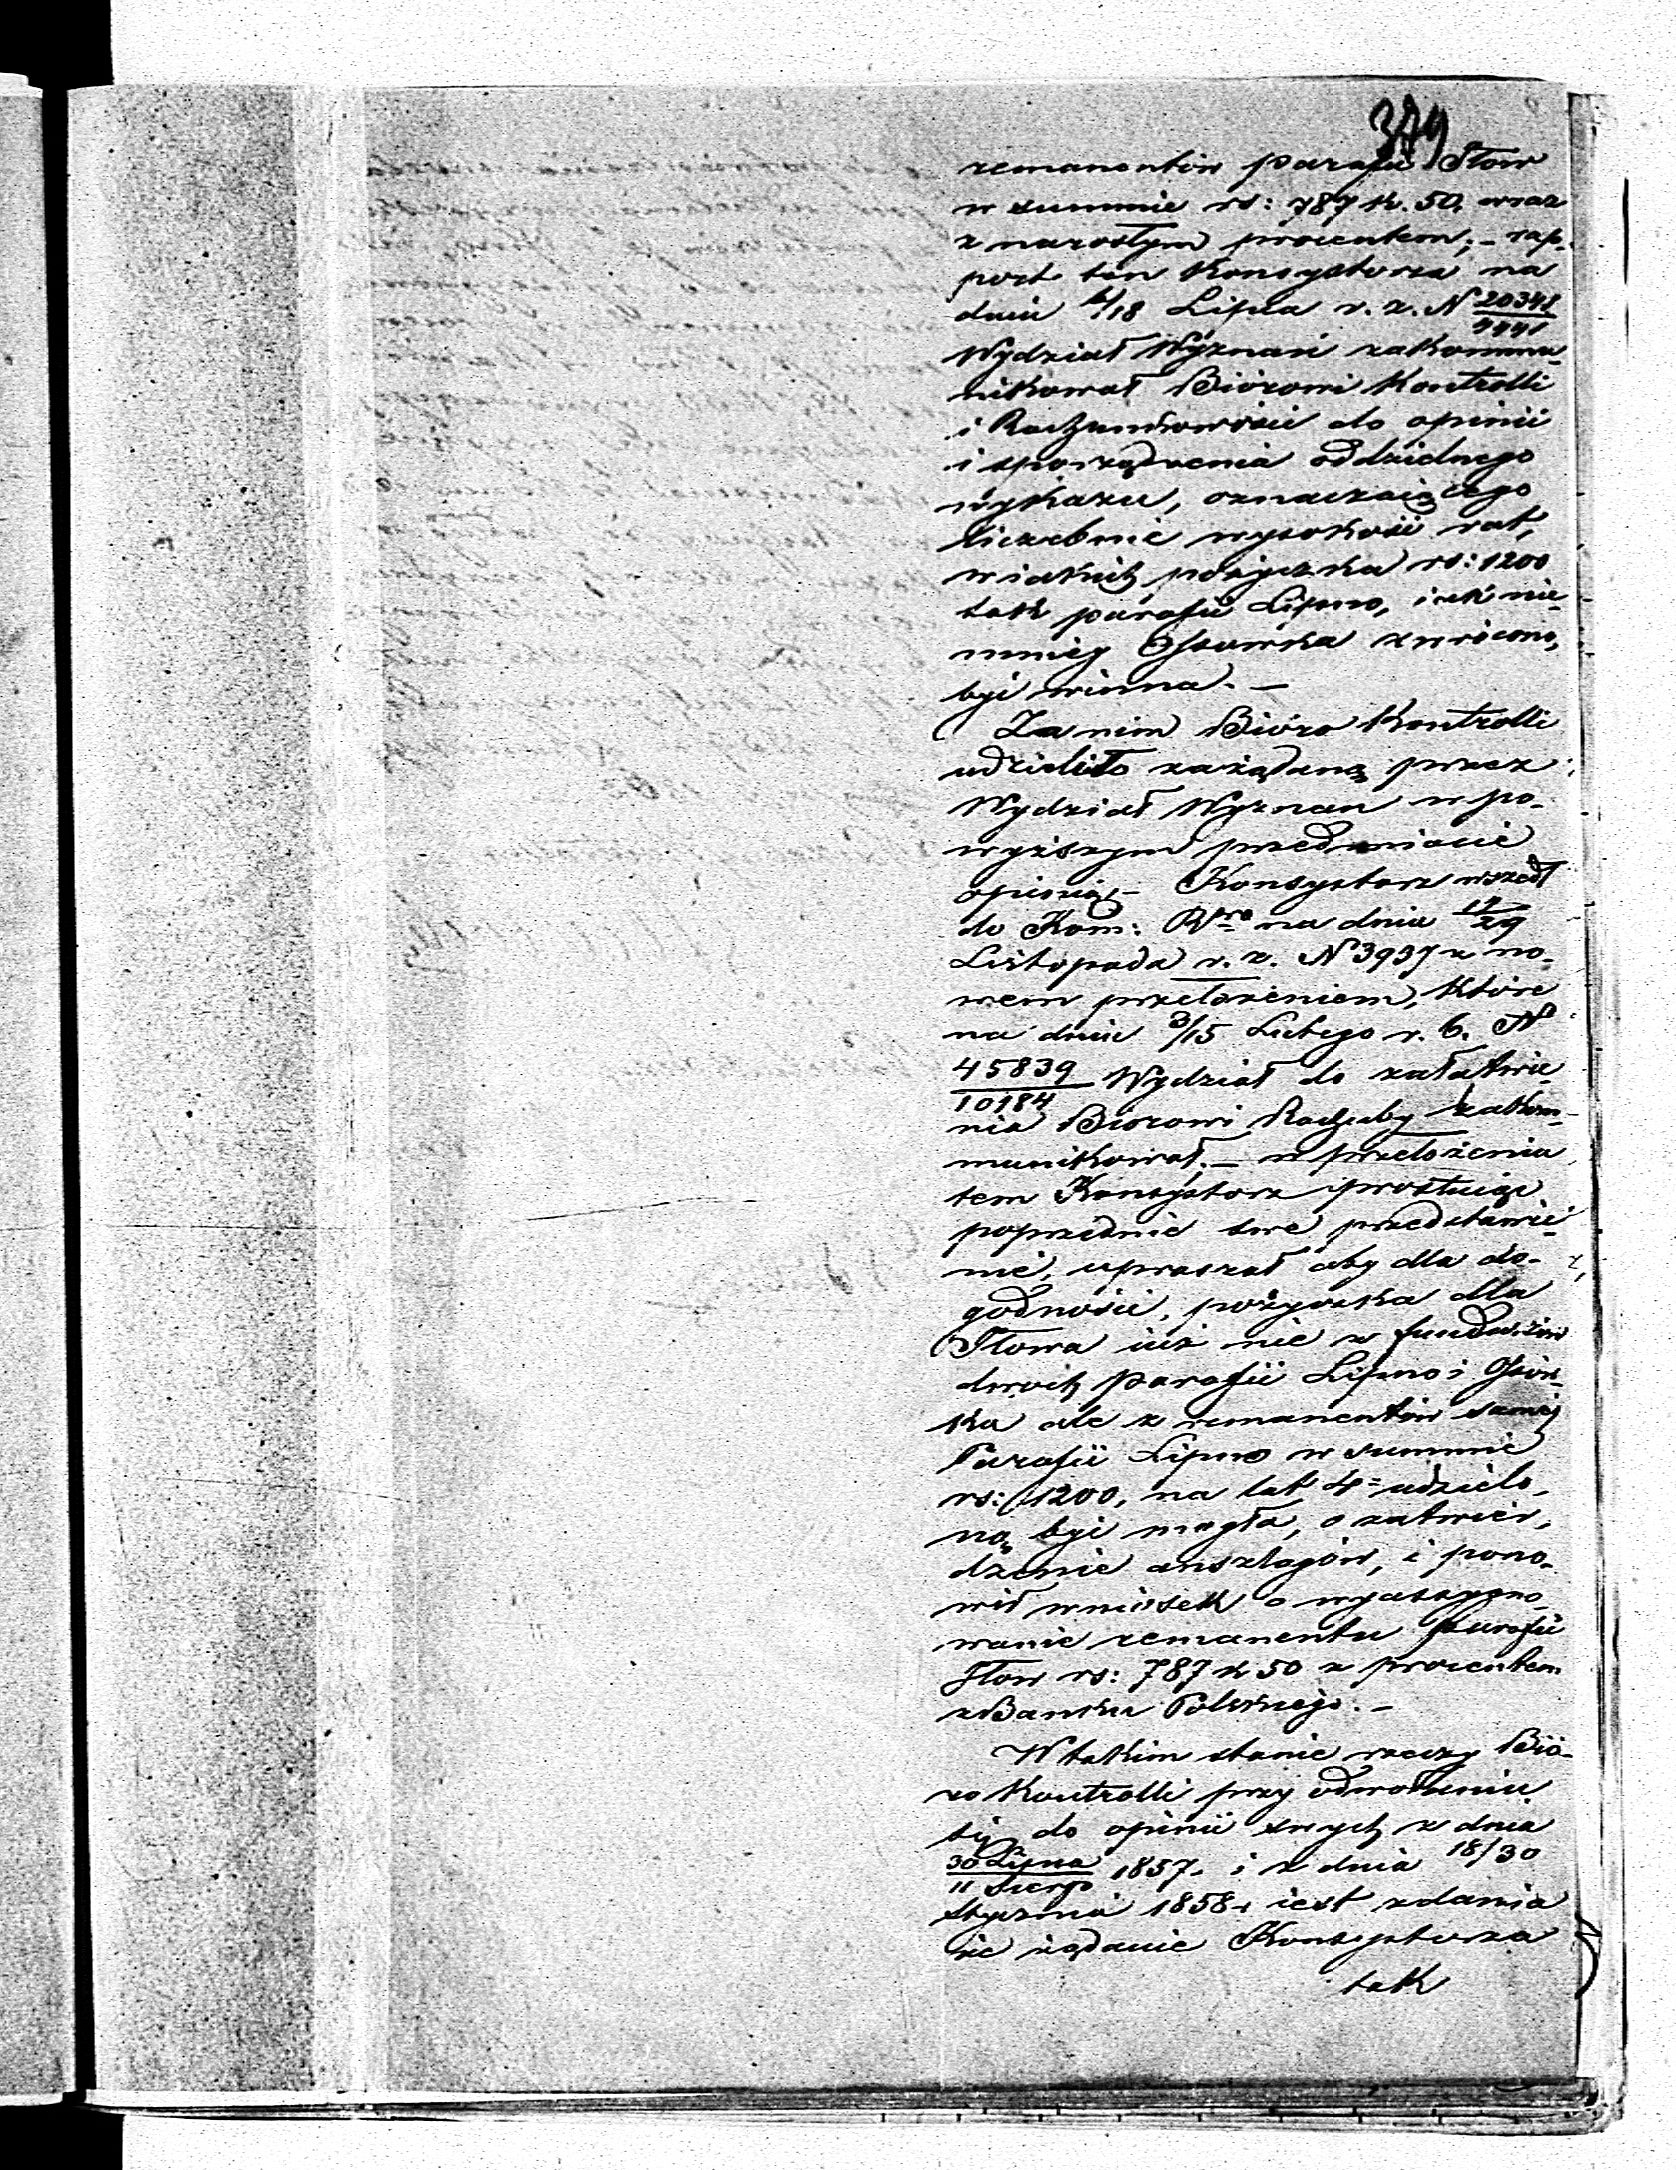 379
remanentów parafii Iłow
w summie rs: 787 k. 50, wraz
z narosłym procentem; – rap-
port ten Konsystorza na
dniu 6/18 Lipca r. z. N 20348/4441
Wydział Wyznań zakommu-
nikował Biórowi Kontrolli
i Rachunkowości do opinii
i sporządzenia oddzielnego
wykazu, oznaczaiącego
liczebnie wysokość rat,
w iakich pożyczka rs: 1200
tak parafii Lipno, iak nie-
mniey Ossowka zwrócona,
być winna. –
Zanim Bióro Kontrolli
udzieliło zażądaną przez
Wydział Wyznan w po-
wyższym przedmiocie
opinią – Konsystorz wszedł
do Kom: R na dniu 17/29
Listopada r. z. N 3937 z no-
wem przełożeniem, które
na dniu 3/15 Lutego r. b. N
45839/10184 Wydział do załatwie-
nia Biorowi Rachuby zakom-
munikował; – w przełożeniu
tem Konsystorz prostuiąc
poprzednie swe przedstawie-
nie, upraszał aby dla do-
godności, pożyczka dla
Iłowa iuż nie z funduszów
dwóch parafii Lipno i Osów-
ka ale z remanentów samej
Parafii Lipno w summie
rs: 1200, na lat 4 udzielo-
ną być mogła, o zatwier-
dzenie anszlagów, i pono-
wił wniosek o wyassygno-
wanie remanentu parafii
Iłow rs: 787 k 50 z procentem
z Banku Polskiego. –
W takim stanie rzeczy Bió-
ro Kontrolli przy odwołaniu
się do opinii swych z dnia
30 Lipca/11 Sierp 1857. i z dnia 18/30
Stycznia 1858. iest zdania
że żądanie Konsystorza
tak